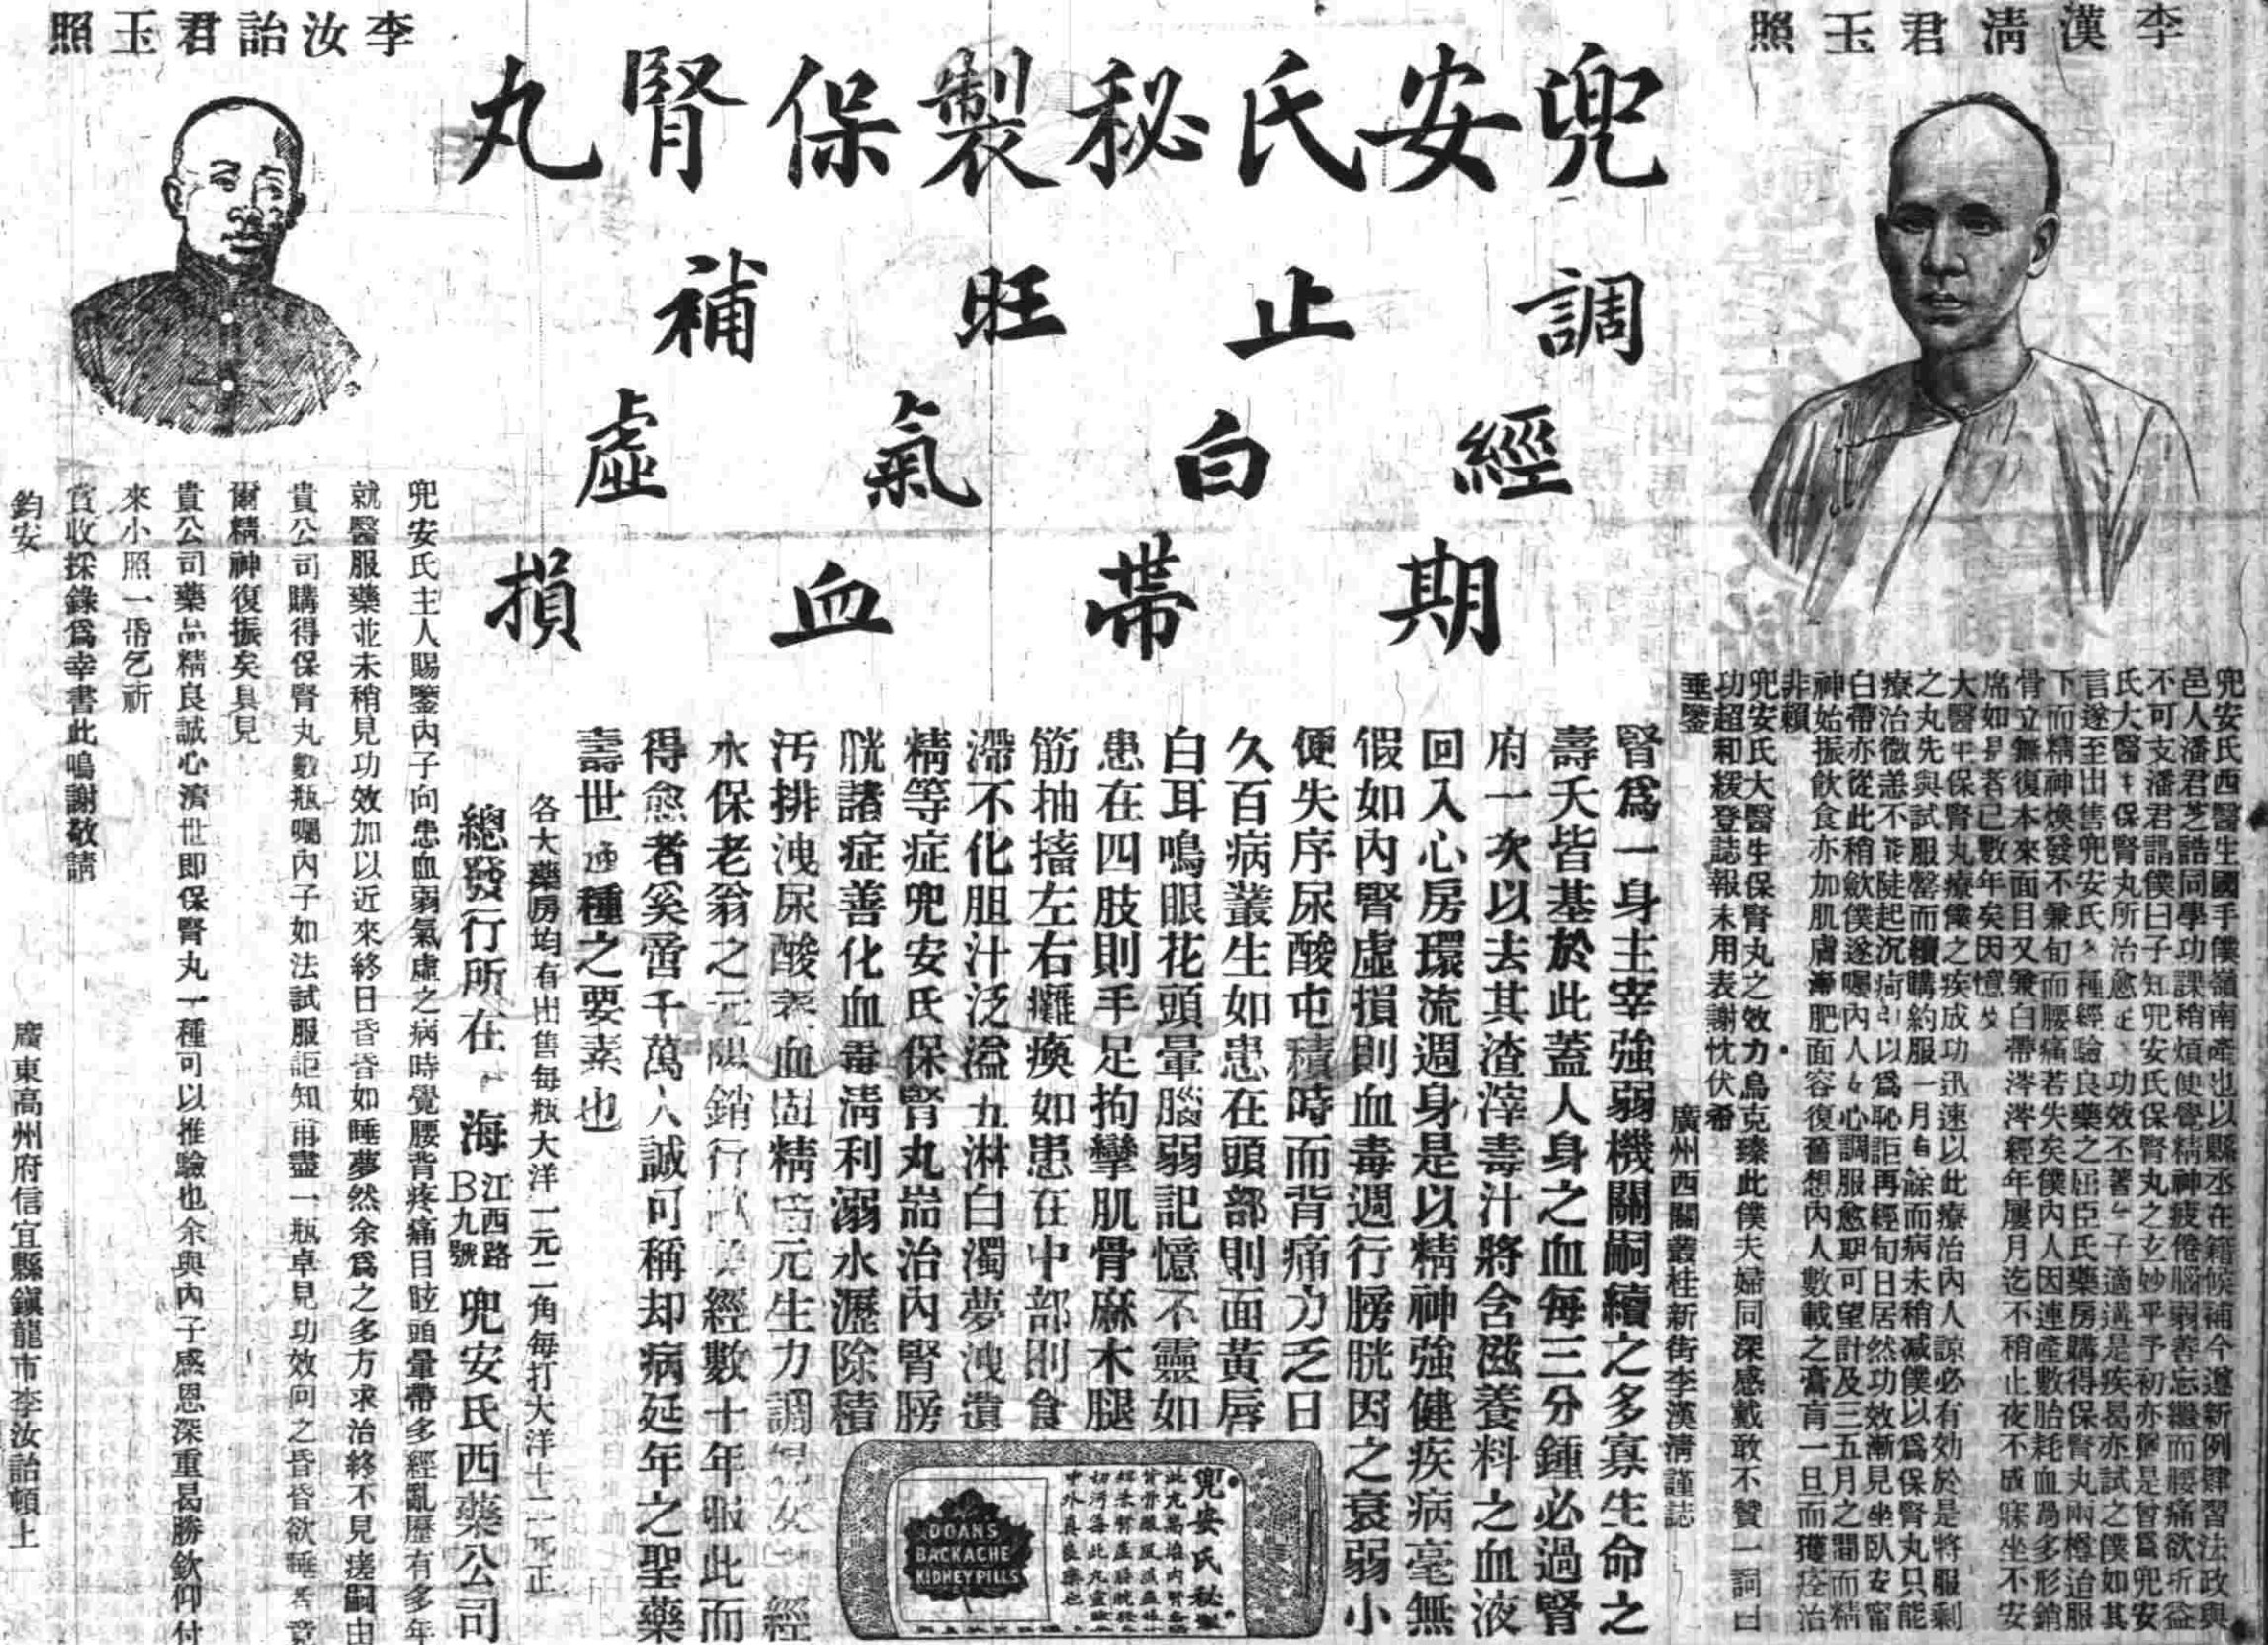 兜安氏秘製保腎丸
調經期
止白帶
旺氣血
補虛損
李漢清君玉照
兜安氏西醫生國手僕嶺南產也以縣丞在籍候補今遵新例肄習法政與
邑人潘君芝誥同學功課稍煩使覺精神疲倦腦弱善忘繼而腰痛欲折益
不可支潘君謂僕曰子知兜安氏保腎丸之玄妙乎予初亦是曾為兜安
氏大醫保腎丸所治愈功效不著子適遘是疾曷亦試之僕如其
言遂至出售兜安氏種經驗良藥之屈臣氏藥房購得保腎丸兩樽迨服
下而精神煥發不兼旬而腰痛若失矣僕內人因連產數胎耗血過多形銷
骨立無復本來面目又兼白帶涔涔經年屢月迄不稍止夜不成寐坐不安
席如是者已數年矣因憶
大醫保腎丸療僕之疾成功迅速以此療治內人諒必有効於是將服剩
之丸先與試服罄而續購約服一月餘而病未稍減僕以為保腎丸只能
療治微恙不能陡起沉疴引以為恥詎再經旬日居然功效漸見坐臥安甯
白帶亦從此稍歛僕遂囑內人心調服愈期可望計及三五月之間而精
神始振飲食亦加肌膚漸肥面容復舊想內人數載之膏肓一旦而獲痊治
非賴
兜安氏大醫生保腎丸之效力烏克臻此僕夫婦同深感戴敢不贊一詞曰
功超和緩登誌報末用表謝忱伏希
垂鑒
廣州西關叢桂新街李漢清謹誌
腎為一身主宰強弱機關嗣續之多寡生命之
壽夭皆基於此蓋人身之血每三分鍾必過腎
府一次以去其渣滓毒汁將含滋養料之血液
回入心房環流週身是以精神強健疾病毫無
假如內腎虛損則血毒週行膀胱因之衰弱小
便失序尿酸屯積時而背痛力乏日
久百病叢生如患在頭部則面黃唇
白耳鳴眼花頭暈腦弱記憶不靈如
患在四肢則手足拘攣肌骨麻木腿
筋抽搐左右癱瘓如患在中部則食
滯不化胆汁泛溢五淋白濁夢洩遺
精等症兜安氏保腎丸耑治內腎膀
胱諸症善化血毒清利溺水瀝除積
污排洩尿酸養血固精培元生力調經
水保老翁之元陽銷行經數十年服此而
得愈者奚啻千萬人誠可稱却病延年之聖藥
壽世種之要素也
兜安氏秘製
DOANS
BACKACHE
KIDNEY PILLS
各大藥房均有出售每瓶大洋一元二角每打大洋十二元正
總發行所在海江西路B九號兜安氏西藥公司
李汝詒君玉照
兜安氏主人賜鑒內子向患血弱氣虛之病時覺腰背疼痛目眩頭暈帶多經亂歷有多年
就醫服藥並未稍見功效加以近來終日昏昏如睡夢然余為之多方求治終不見瘥嗣由
貴公司購得保腎丸數瓶囑內子如法試服詎知甫盡一瓶卓見功效向之昏昏欲睡者竟
爾精神復振矣具見
貴公司藥品精良誠心濟世即保腎丸一種可以推驗也余與內子感恩深重曷勝欽仰付
來小照一張乞祈
賞收採錄為幸書此鳴謝敬請
鈞安
廣東高州府信宜縣鎮龍市李汝詒頓上